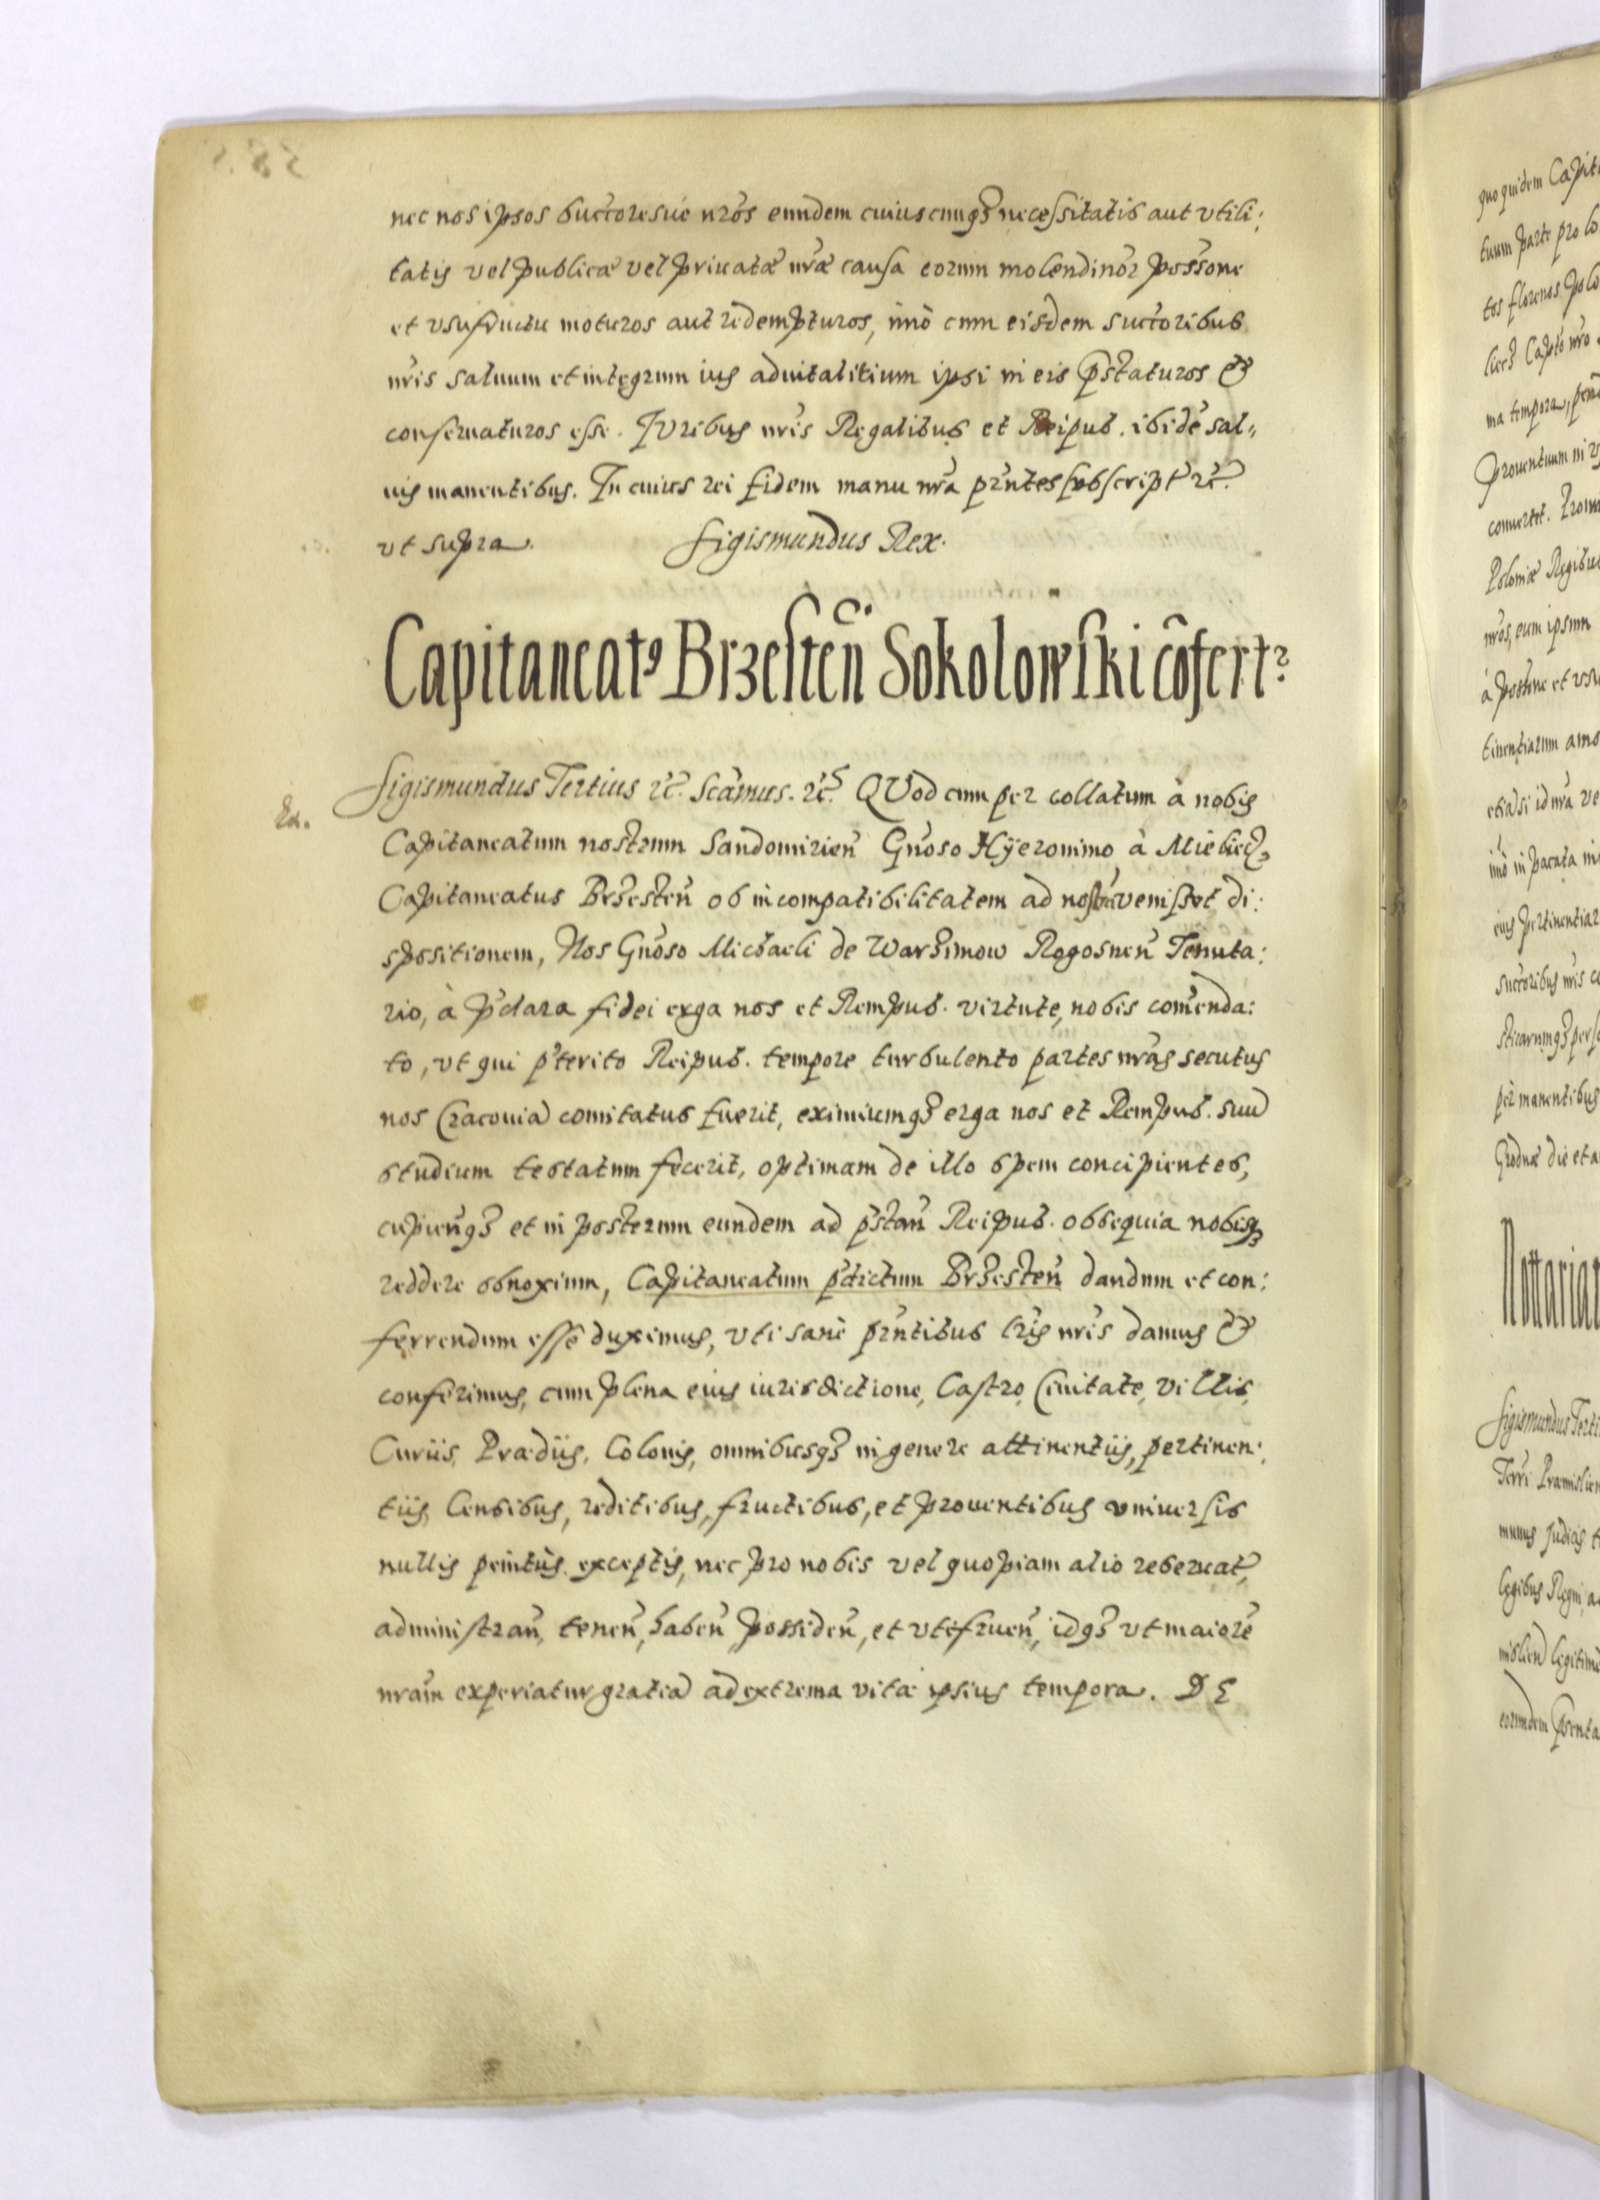 nec nos ipsos suctoresve nros eundem cuiuscunqȝ necessitatis aut vtili:
tatis vel publicæ vel priuatæ nræ causa eorum molendinor possone
et vsufructu moturos aut redempturos, imò cum eisdem suctoribus
nris saluum et integrum ius aduitalitium ipsi in eis pstaturos &
conseruaturos esse. IVribus nris Regalibus et Reipub. ibidē sal„
uis manentibus. In cuius rei fidem manu nra prntes subscript rc.
vt supra. Sigismundus Rex.
Capitaneatꝰ Brzesten̄ Sokolowski cōfert
Sigismundus Tertius rc. Scamus. rc. QVod cum per collatum à nobis
Capitaneatum nostrum Sandomirien̄ Gnoso Hÿeronimo à Mielecz
Capitaneatus Brzesten̄ ob incompatibilitatem ad nostrā venisset di:
spositionem, Nos Gnoso Michaeli de Warzimow Rogosnen̄ Tenuta:
rio, à pclara fidei erga nos et Rempub. virtute, nobis comenda:
to, vt qui pterito Reipub. tempore turbulento partes nras secutus
nos Cracouiā comitatus fuerit, eximiumqȝ erga nos et Rempub. suū
studium testatum fecerit, optimam de illo spem concipientes,
cupienqȝ et in posterum eundem ad pstan̄ Reipub. obsequia nobisqȝ
reddere obnoxium, Capitaneatum pdictum Brzesten̄ dandum et con:
ferrendum esse duximus, vti sanè prntibus lris nris damus &
conferimus, cum plena eius iurisdictione, Castro, Ciuitate, villis,
Curiis, Prædiis, Colonis, omnibusqȝ in genere attinentiis, pertinen:
tiis, Censibus, reditibus, fructibus, et prouentibus vniuersis
nullis penitùs exceptis, nec pro nobis vel quopiam alio reseruat,
administran̄, tenen̄, haben̄, possiden̄, et vtifruen̄, idqȝ vt maiorē
nram experiatur gratiā ad extrema vitæ ipsius tempora. DE
quo quidem Capit
tuum parte pro
tos florenos Polo
ma tempora,
Prouentuum in
conuertet.
Poloniæ Regibus
nros, eum ipsum
à possone et vsu
tinentiarum amo
etiā si id nra ve
imò in pacata
eius pertinentiar
suctoribus nris
per manentibus
Grodnæ die et a
Nottariat
Sigismundus Terti
Terri Præmislien
legibus Regni, a
eorundem